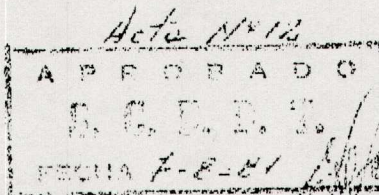 Acta Nº 12
APROBADO
FECHA 7-8-81